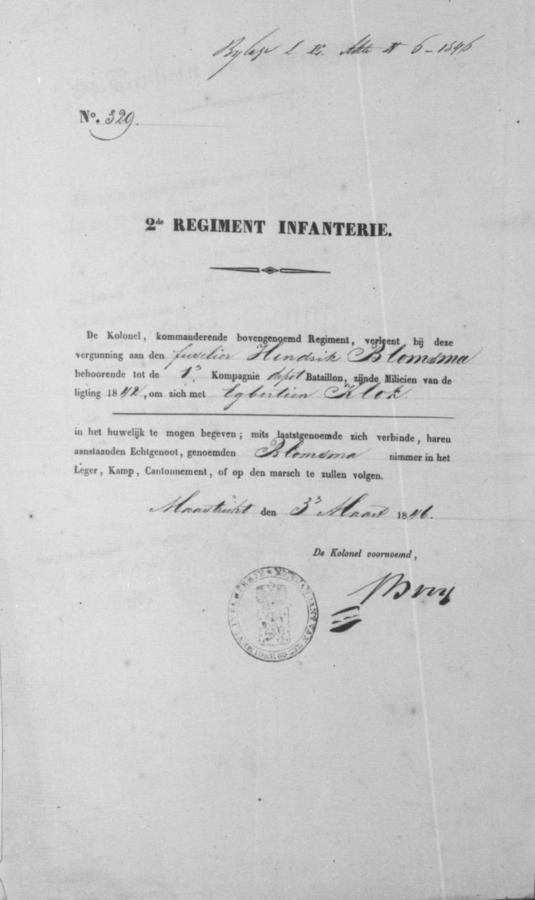 Bylage Akte N 6 - 1846
No. 329.
2de REGIMENT INFANTERIE.
De Kolonel, kommanderende bovengenoemd Regiment, verleent bij deze
vergunning aan den fuselier Hendrik Blomsma
behoorende tot de 1e Kompagnie depôt Bataillon, zijnde Milicien van de
ligting 1842, om zich met Egbertien Klok
in het huwelijk te mogen begeven; mits laatstgenoemde zich verbinde, haren
aanstaanden Echtgenoot, genoemden Blomsma nimmer in het
Leger, Kamp, Cantonnement, of op den marsch te zullen volgen.
Maastricht den 3e Maart 1846.
De Kolonel voornoemd,